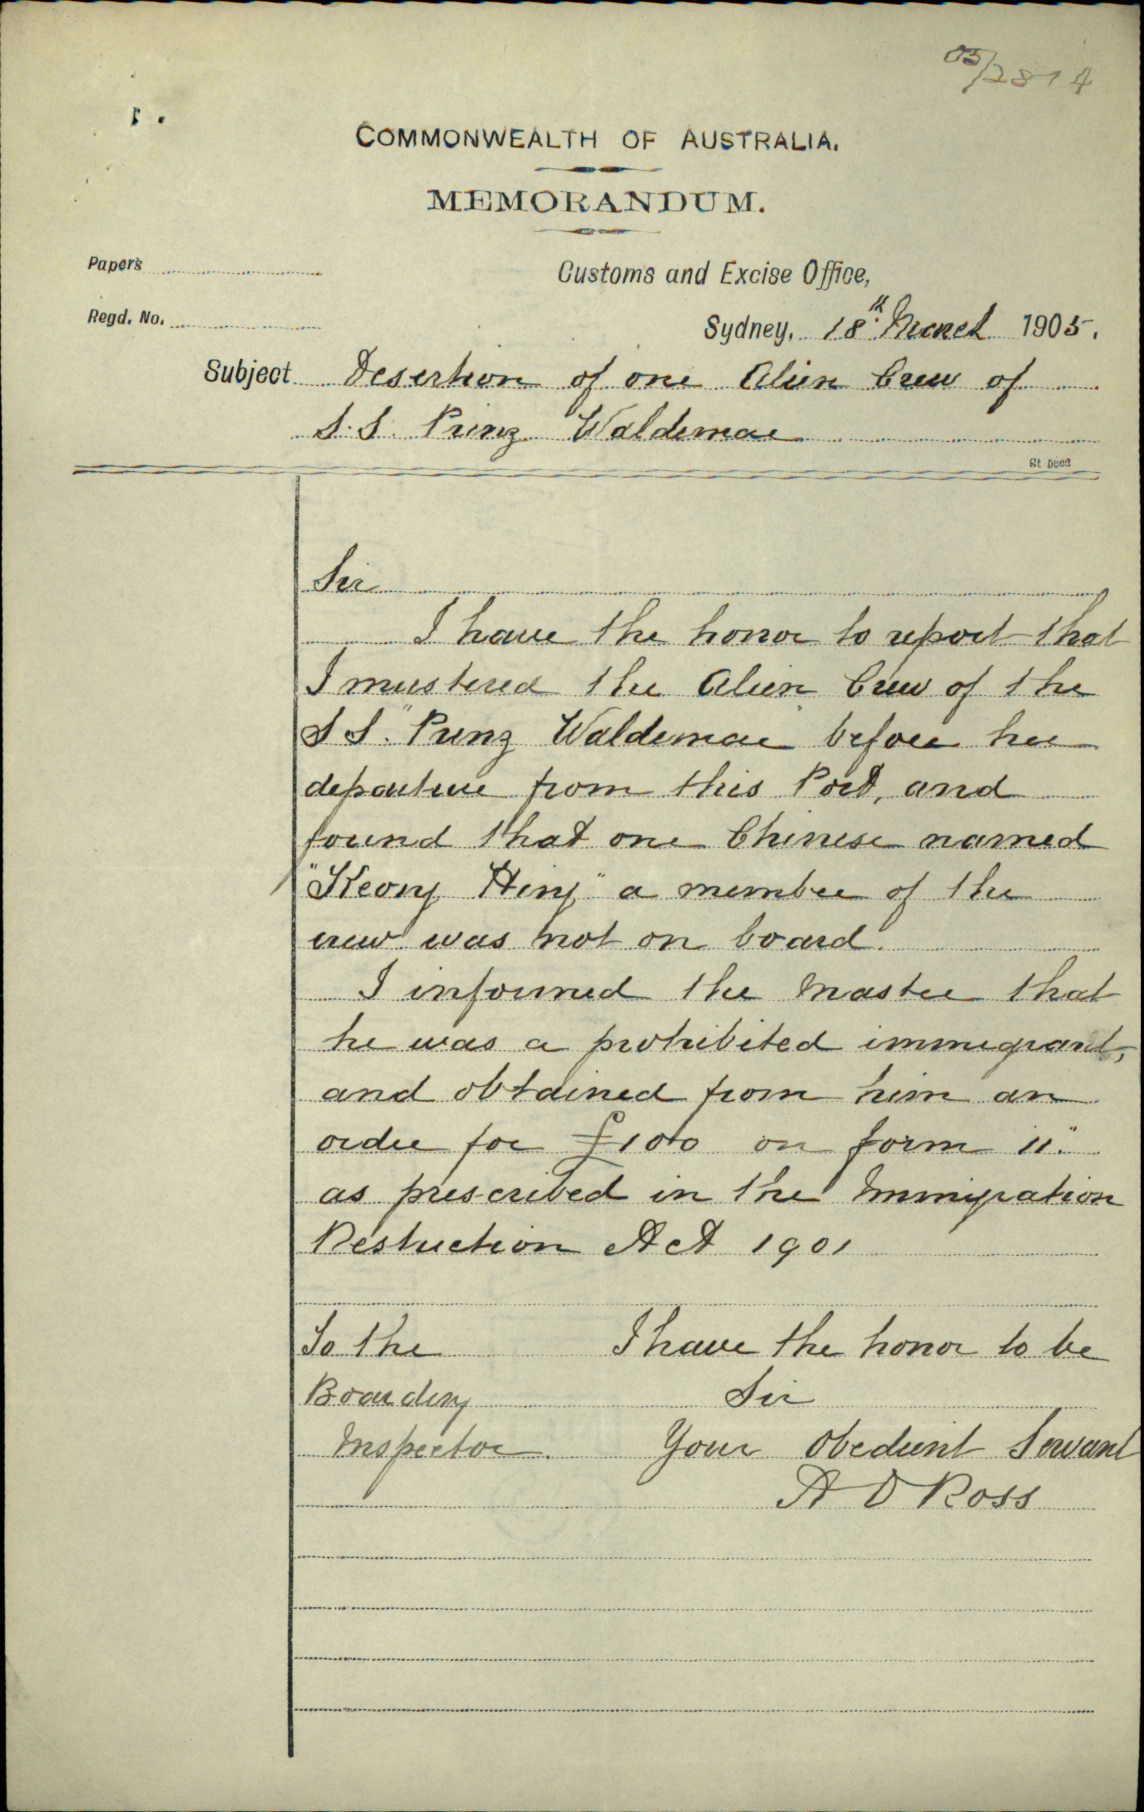 05/2814
COMMONWEALTH OF AUSTRALIA.
MEMORANDUM.
Papers
Customs and Excise Office,
Regd. No.
Sydney, 18th March 1905.
Subject Desertion of one Alien Crew of
S.S. Prinz Waldemar
Sir
I have the honor to report that
I mustered the Alien Crew of the
S S. "Prinz Waldemar" before her
departure from this Port, and
found that one Chinese named
"Keong Hing" a member of the
crew was not on board.
I informed the Master that
he was a prohibited immigrant,
and obtained from him an
order for £100 on form "11"
as prescribed in the Immigration
Restriction Act 1901
To the I have the honor to be
Boarding Sir
Inspector. Your Obedient Servant
A D Ross